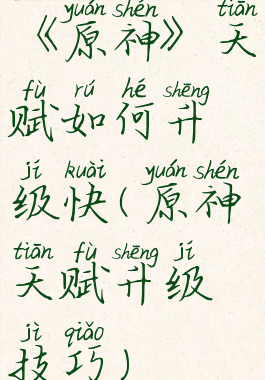 yuán shén tiān
《原神》 天
fù rú hé shēng
赋如何升
jí kuài yuán shén
级快(原神
tiān fù shēng jí
天赋升级
jì qiǎo
技巧)